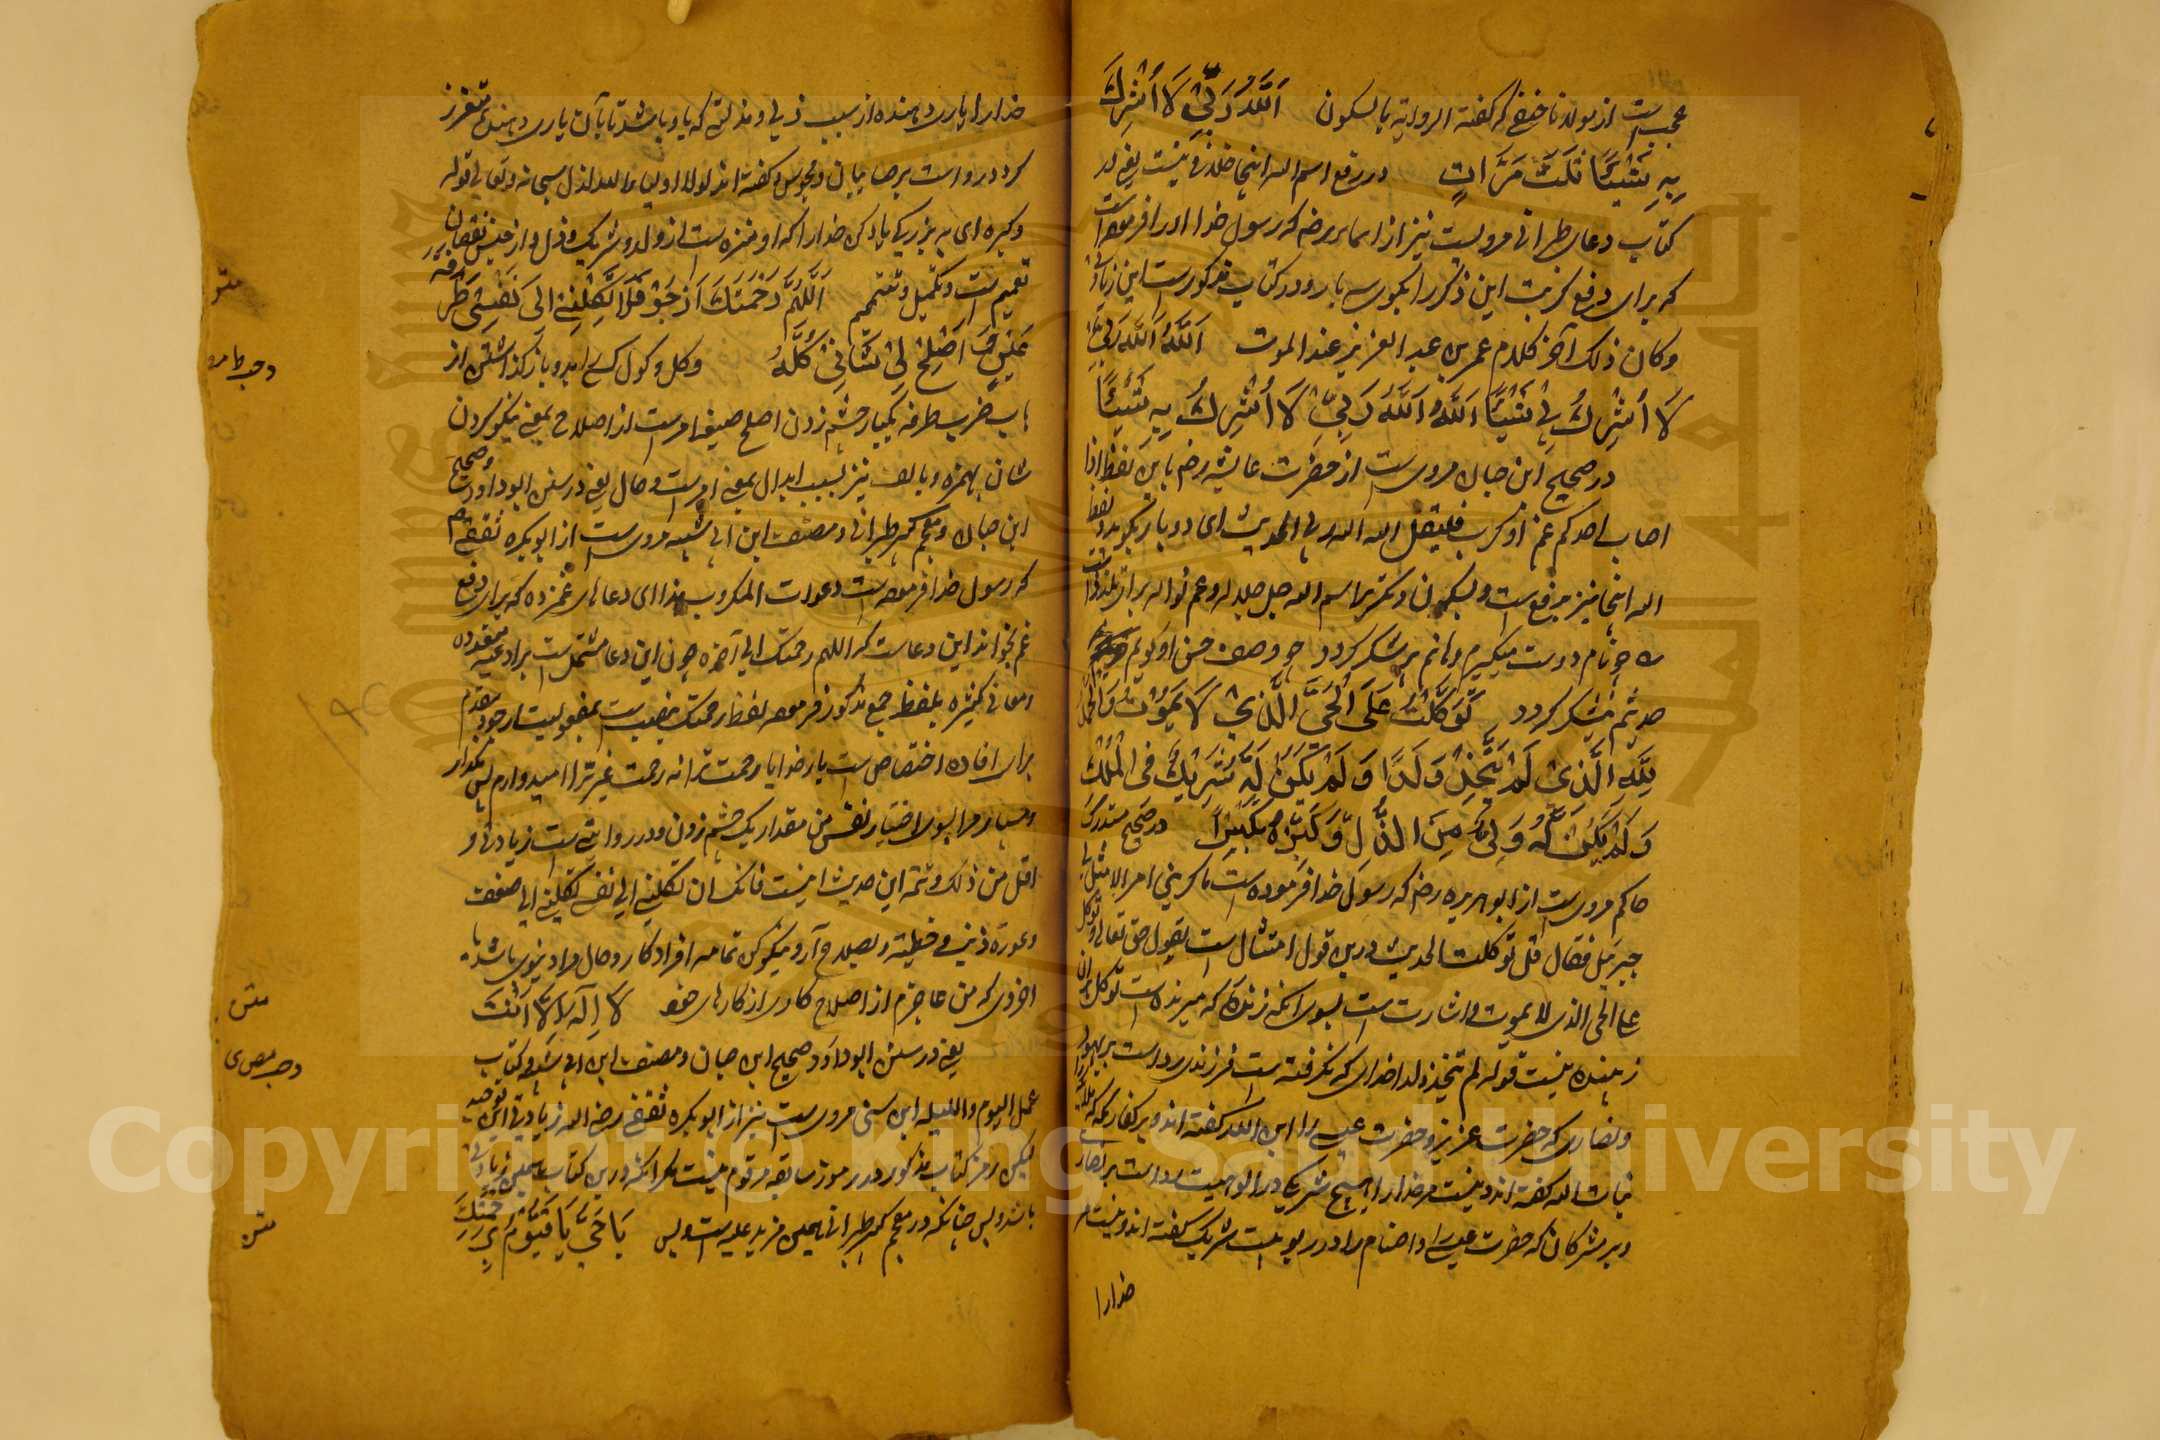 عجب ست از مولانا حنفی که گفته الروایة بالسکون اَللّٰهُ رَبِّيْ لَا أُشْرِكُ
بِهِ شَيْئًا ثَلٰثَ مَرَّاتٍ در رفع اسم الله اینجا خلاف نیست یعنی در
کتاب دعای طبرانی مرویست نیز از اسما که رسول خدا او را فرموده است
که برای دفع کربت این ذکر را بگوی سه بار و در کتاب مذکورست این زیادتی
وکان ذلک آخر کلام عمر بن عبد العزیز عند الموت اَللّٰهُ اَللّٰهُ رَبِّيْ
لَا أُشْرِكُ بِهِ شَيْئًا اَللّٰهُ اَللّٰهُ رَبِّيْ لَا أُشْرِكُ بِهِ شَيْئًا
در صحیح ابن حبان مروی ست از حضرت عایشه رض باین لفظ اذا
اصاب احدکم غم او کرب فلیقل الله الله ربی الحدیث ای دو بار بگوید و لفظ
الله اینجا نیز برفع ست و بسکون و تکریر اسم الله جل جلاله و عم نواله برای تلذذ ست
ه چو نام دوست میگیرم دهانم پر شکر گردد چو وصف حسن او گویم
حدیثم پر شکر گردد تَوَكَّلْتُ عَلَى الْحَيِّ الَّذِيْ لَا يَمُوْتُ وَالْحَمْدُ
لِلّٰهِ الَّذِيْ لَمْ يَتَّخِذْ وَلَدًا وَلَمْ يَكُنْ لَهُ شَرِيْكٌ فِي الْمُلْكِ
وَلَمْ يَكُنْ لَهُ وَلِيٌّ مِنَ الذُّلِّ وَكَبِّرْهُ تَكْبِيْرًا در صحیح مستدرک
حاکم مروی ست از ابو هریره رض که رسول خدا فرموده است ما کربنی امر الا مثل لی
جبرئیل فقال قل توکلت الحدیث درین قول امتثال ست بقول حق تعالی و توکل
علی الحی الذی لا یموت و اشارت ست بسوی آنکه زنده که میرنده است توکل بران
زیبنده نیست قوله لم یتخذ ولدا خدای که نگرفته ست فرزندی رد است بر یهود
ونصاری که حضرت عزیر و حضرت عیسی را ابن الله گفته اند و بر کفار مکه که ملائکه را
بنات الله گفته اند و نیست مر خدا را هیچ شریکی در الوهیت رد است بر نصاری
و بر مشرکان که حضرت عیسی را و اصنام را در ربوبیت شریک گفته اند و نیست مر
خدا را
خدا را یاری دهنده از سبب ذلی و مذلتی که باو باشد تا بآن یاری دهنده متعزز
گردد رد است بر صابیان و مجوس که گفته اند لولا اولیاء الله لذل سبحانه و تعالی قوله
وکبره ای به بزرگی یاد کن خدا را که او منزه ست از ولد و شریک و ذل و از جنس نقصان
تعمیم ست و تکمیل و تتمیم اَللّٰهُمَّ رَحْمَتَكَ اَرْجُوْ فَلَا تَكِلْنِيْ اِلٰى نَفْسِيْ طَرْفَةَ
عَيْنٍ وَ اَصْلِحْ لِيْ شَانِيْ كُلَّهُ وکل و کول کسی را بدو باز گذاشتن از
باب ضرب طرفه یکبار چشم زدن اصلح صیغه امرست از اصلاح بمعنی نیکو کردن
شان بهمزه و بالف نیز بسبب ابدال بمعنی امرست و حال یعنی در سنن ابو داود و صحیح
ابن حبان و معجم کبیر طبرانی و مصنف ابن ابی شیبه مروی ست از ابو بکره ثقفی رض
که رسول خدا فرموده ست دعوات المکروب هذا ای دعاهای غمزده که برای دفع
غم بخواند این دعاست که اللهم رحمتک الی آخره چون این دعا مشتمل ست بر ادعیه متعدده
ومعانی کثیره بلفظ جمع مذکور فرموده لفظ رحمتک بنصب ست بمفعولیت ارجو و مقدم
برای افاده اختصاص ست بار خدایا رحمت ترا نه رحمت غیر ترا امیدوارم پس مگذار
ومسپار مرا بسوی اختیار نفس من مقدار یک چشم زدن و در روایتی ست زیادتی و
اقل من ذلک و تتمه این حدیث اینست فانک ان تکلنی الی نفسی تکلنی الی ضعف
وعورة وذنب و خطیئة و بصلاح آر و نیکو کن تمامه افراد کار و حال مرا دنیوی باشد یا
اخروی که من عاجزم از اصلاح کاری از کارهای خود لَا اِلٰهَ اِلَّا اَنْتَ
یعنی در سنن ابو داود و صحیح ابن حبان و مصنف ابن ابی شیبه و کتاب
عمل الیوم واللیله ابن سنی مروی ست نیز از ابو بکره ثقفی رضی الله زیادتی این توحید
لیکن رمز کتاب مذکور در رموز سابقه مرقوم نیست مگر آنکه درین کتاب همین زیادتی
باشد و بس چنانکه در معجم کبیر طبرانی همین مزید علیه ست و بس يَا حَيُّ يَا قَيُّوْمُ بِرَحْمَتِكَ
متن
وجه طا مر
متن
وجه مص ری
متن
Copyright © King Saud University